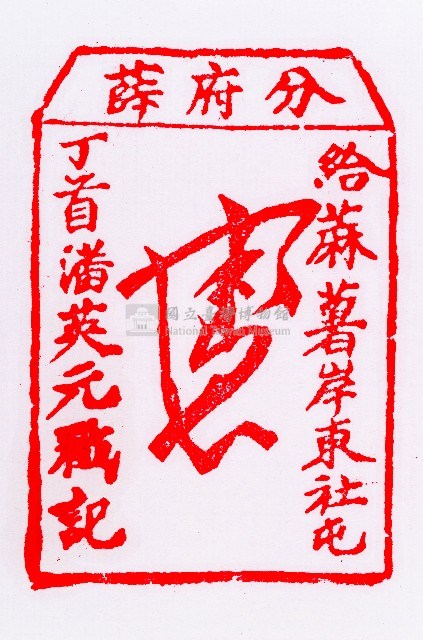 分府薛
給蔴薯岸東社屯
丁首潘英元戳記
國立臺灣博物館
National Taiwan Museum